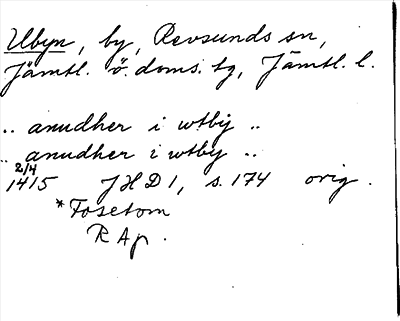 Utbyn, by, Revsunds sn,
Jämtl. ö. doms. tg, Jämtl. l.
.. anudher i wtbij ..
.. anudher i wtby ..
2/4
1415 JHD 1, s. 174 orig.
*Fosetom
R Ap.